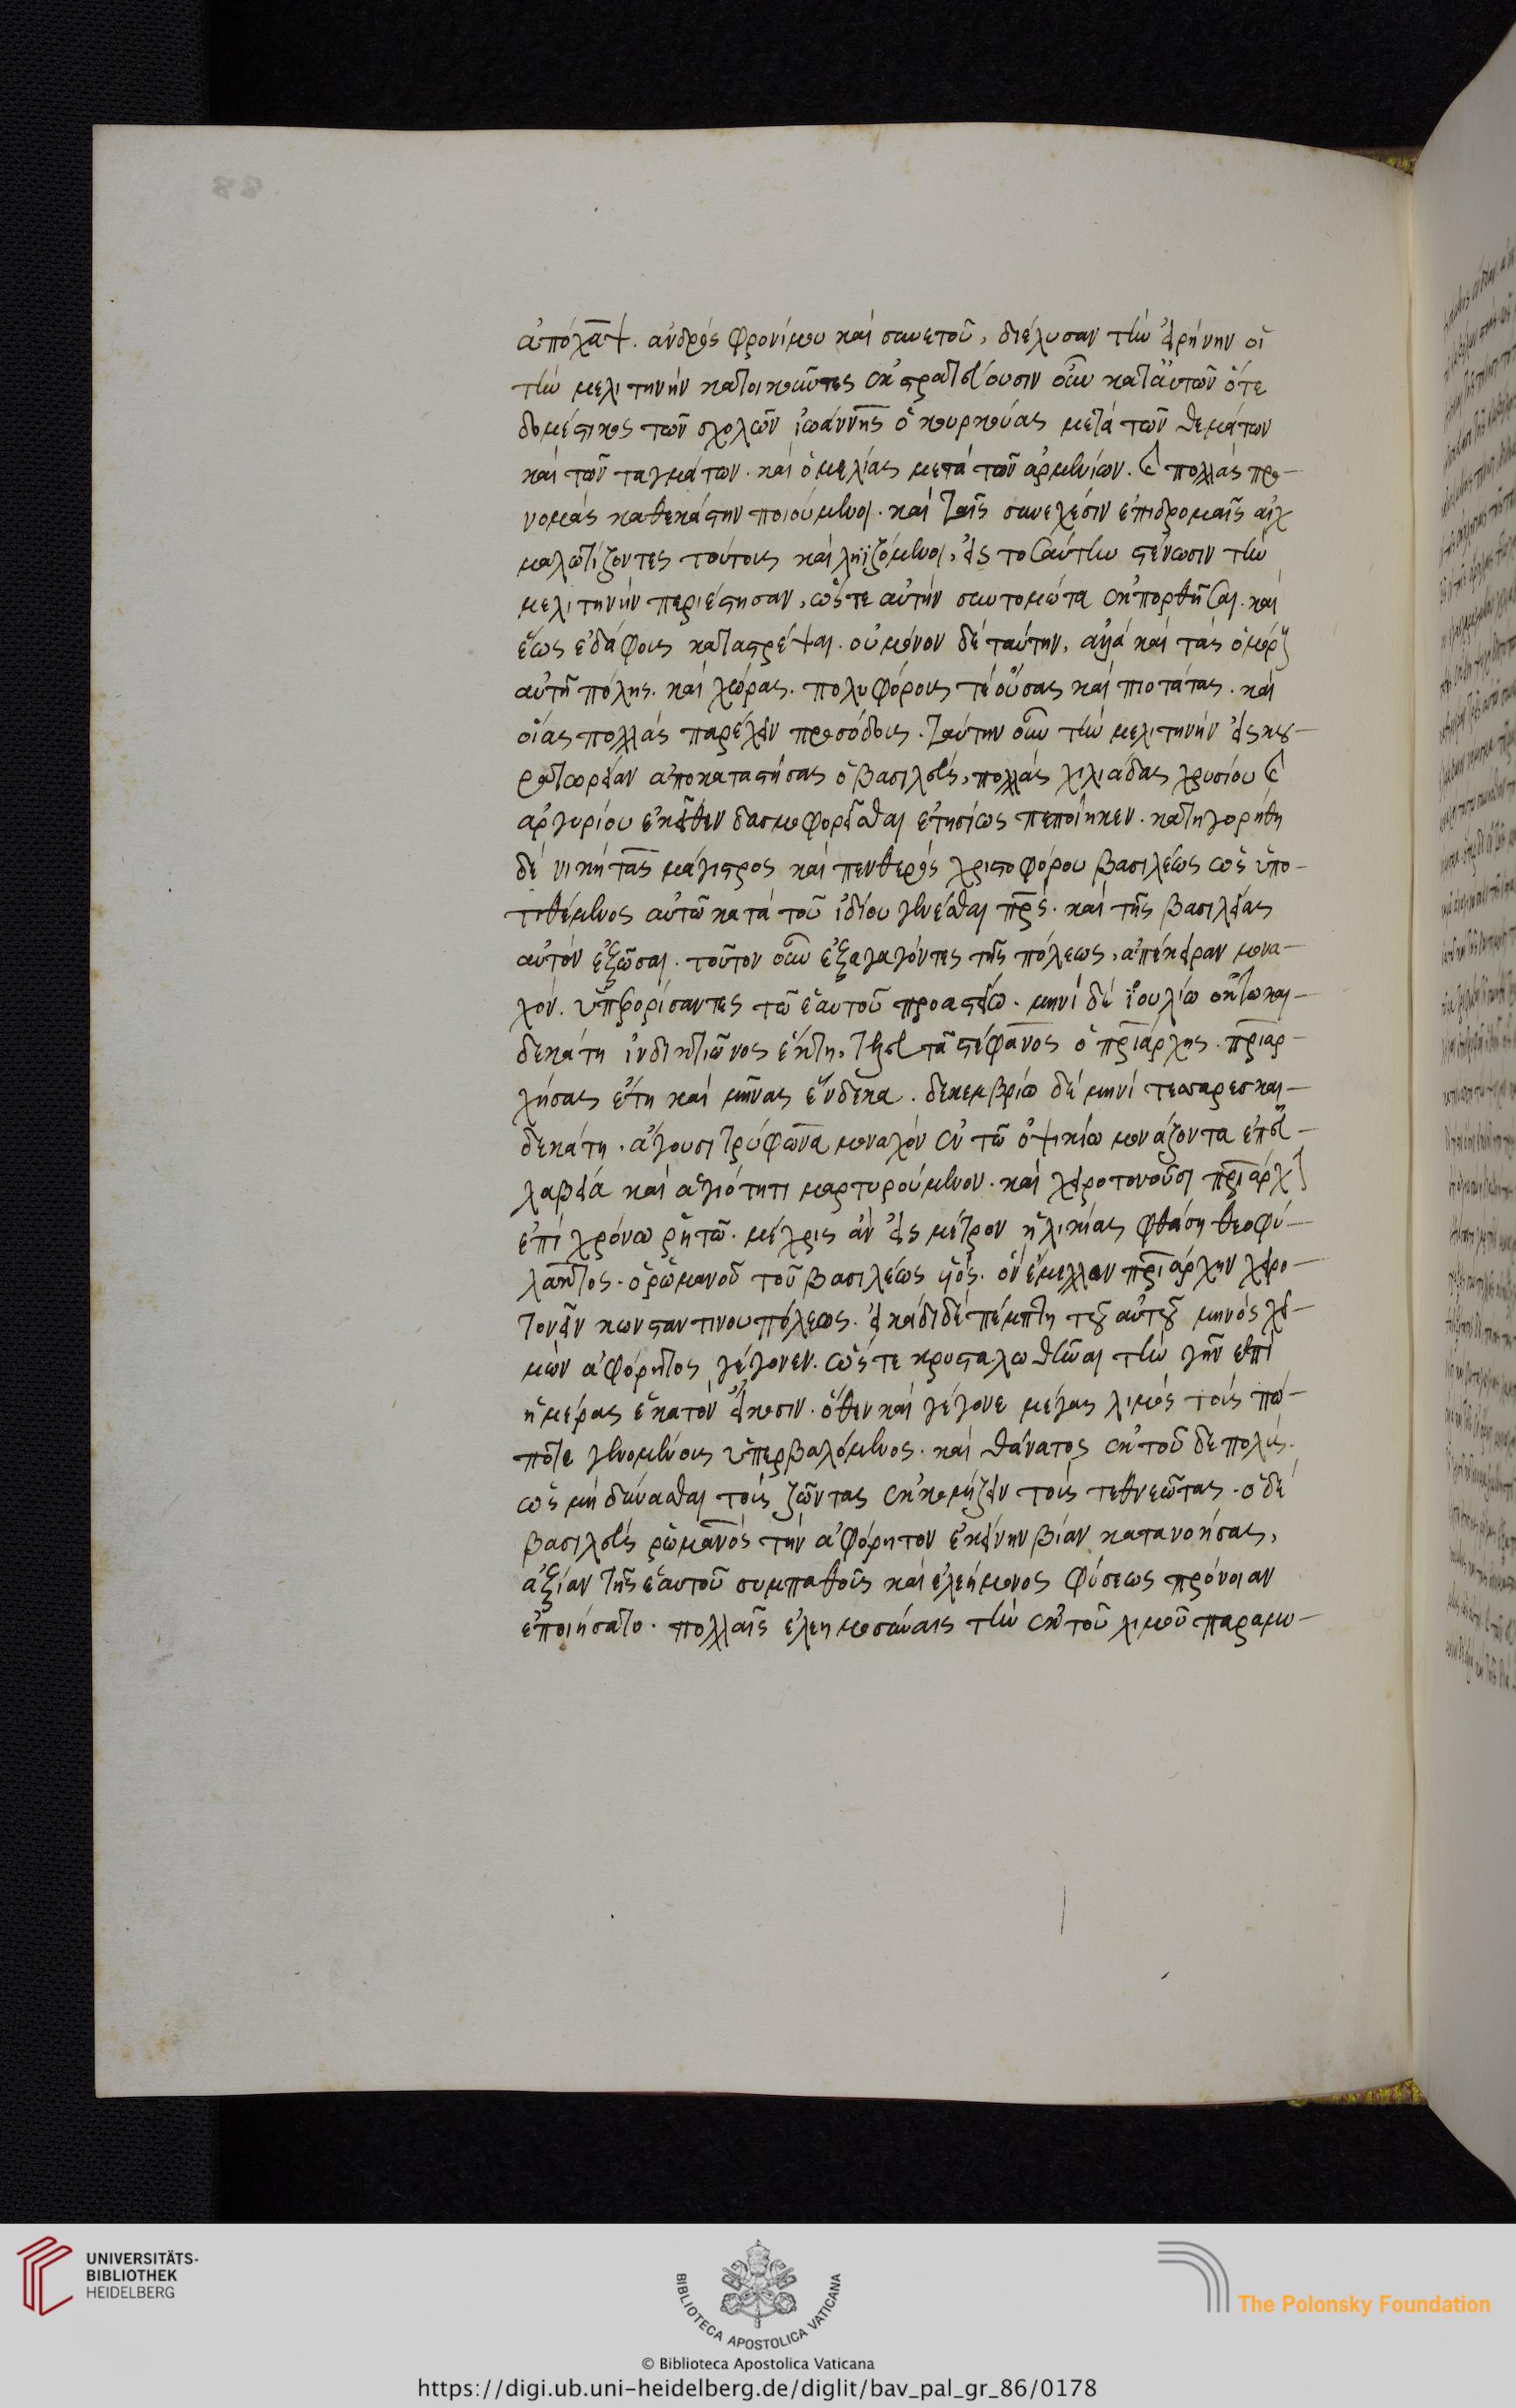 ἀπόχαψ. ἀνδρὸς φρονίμου καὶ συνετοῦ, διέλυσαν τὴν εἰρήνην οἱ
τὴν μελιτηνὴν κατοικοῦντες ἐκστρατεύουσιν οὖν κατ' αὐτῶν ὅτε
δομέστικος τῶν σχολῶν ἰωάννης ὁ κουρκούας μετὰ τῶν θεμάτων
καὶ τῶν ταγμάτων. καὶ ὁ μελίας μετὰ τῶν ἀρμενίων. καὶ πολλὰς προ-
νομὰς καθεκάστην ποιούμενοι. καὶ ταῖς συνεχέσιν ἐπιδρομαῖς αἰχ
μαλωτίζοντες τούτους καὶ ληϊζόμενοι, εἰς τοσαύτην στένωσιν τὴν
μελιτηνὴν περιέστησαν, ὥστε αὐτὴν συντομώτα ἐκπορθῆσαι. καὶ
ἕως ἐδάφους καταστρέψαι. οὐ μόνον δὲ ταύτην, ἀλλὰ καὶ τὰς ὁμόρους
αὐτῆ πόλης. καὶ χώρας. πολυφόρους τὲ οὔσας καὶ πιοτάτας. καὶ
οἵας πολλὰς παρέχειν προσόδους. ταύτην οὖν τὴν μελιτηνὴν εἰς κου-
ρατωρείαν ἀποκαταστήσας ὁ βασιλεὺς, πολλὰς χιλιάδας χρυσίου καὶ
ἀργυρίου ἐκεῖθεν δασμοφορεῖσθαι ἐτησίως πεποίηκεν. κατηγορήθη
δὲ νικήτας μάγιστρος καὶ πενθερὸς χριστοφόρου βασιλέως ὡς ὑπο-
τιθέμενος αὐτῶ κατὰ τοῦ ἰδίου γενέσθαι πρς. καὶ τῆς βασιλείας
αὐτὸν ἐξῶσαι. τοῦτον οὖν ἐξαγαγόντες τῆς πόλεως, ἀπέκειραν μονα-
χόν. ὑπερορίσαντες τῶ ἑαυτοῦ προαστείω. μηνὶ δὲ ἰουλίω ὀκτωκαι-
δεκάτη ἰνδικτιῶνος ἕκτη, τελευτᾶ στέφανος ὁ πριάρχης. πριαρ-
χήσας ἔτη καὶ μῆνας ἕνδεκα. δεκεμβρίω δὲ μηνὶ τεσσαρεσκαι-
δεκάτη. ἄγουσι τρύφωνα μοναχὸν ἐν τῶ ὀψικίω μονάζοντα ἐπ' εὐ-
λαβεία καὶ ἁγιότητι μαρτυρούμενον. καὶ χειροτονοῦσι πριάρχην
ἐπὶ χρόνω ῥητῶ. μέχρις ἂν εἰς μέτρον ἡλικίας φθάση θεοφύ-
λακτος. ὁ ῥωμανοῦ τοῦ βασιλέως υἱός. ὃν ἔμελλον πριάρχην χειρο-
τονεῖν κωνσταντινουπόλεως. εἰκάδι δὲ πέμπτη τοῦ αὐτοῦ μηνὸς χει-
μὼν ἀφόρητος γέγονεν. ὥστε κρυσταλωθῆναι τὴν γῆν ἐπὶ
ἡμέρας ἑκατὸν εἴκοσιν. ὅθεν καὶ γέγονε μέγας λιμὸς τοὺς πώ-
ποτε γενομένους ὑπερβαλόμενος. καὶ θάνατος ἐκ τοῦδε πολύς.
ὡς μὴ δύνασθαι τοὺς ζῶντας ἐκκομήζειν τοὺς τεθνεῶτας. ὁ δὲ
βασιλεὺς ῥωμανὸς τὴν ἀφόρητον ἐκείνην βίαν κατανοήσας,
ἀξίαν τῆς ἑαυτοῦ συμπαθοῦς καὶ ἐλεήμονος φύσεως πρόνοιαν
ἐποιήσατο. πολλαῖς ἐλεημοσύναις τὴν ἐκ τοῦ λιμοῦ παραμυ-
UNIVERSITÄTS-
BIBLIOTHEK
HEIDELBERG
BIBLIOTECA APOSTOLICA VATICANA
The Polonsky Foundation
© Biblioteca Apostolica Vaticana
https://digi.ub.uni-heidelberg.de/diglit/bav_pal_gr_86/0178